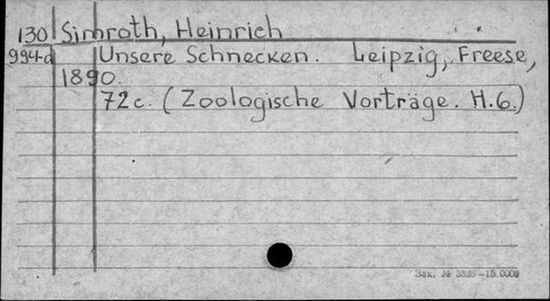 130 Simroth, Heinrich
994-a Unsere Schnecken. Leipzig, Freese,
1890.
72c. (Zoologische Vorträge. H.6.)
Зак. №